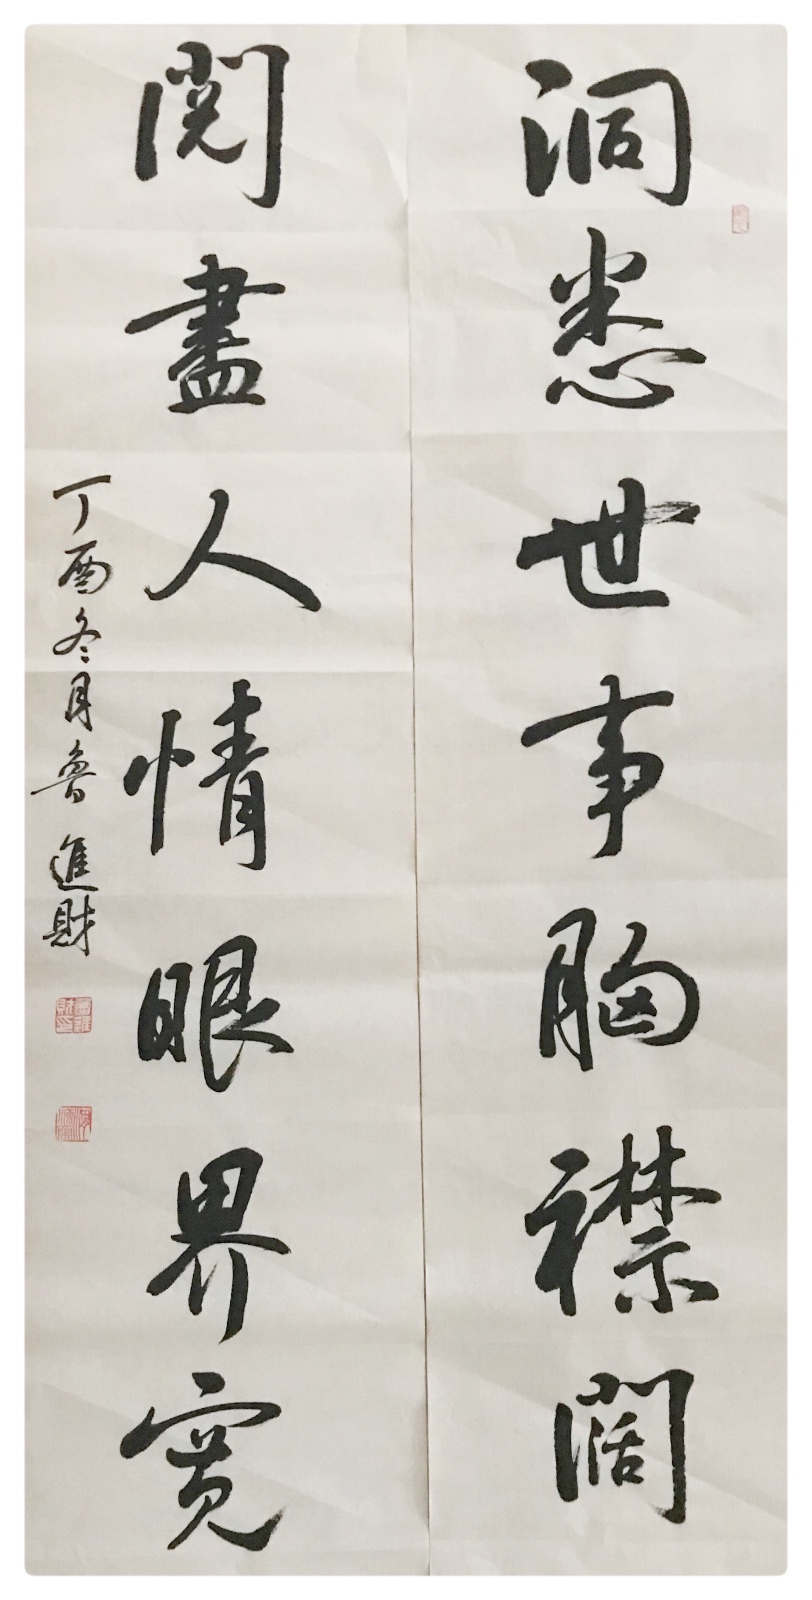 洞悉世事胸襟闊
閱盡人情眼界寬
丁酉冬月魯進財